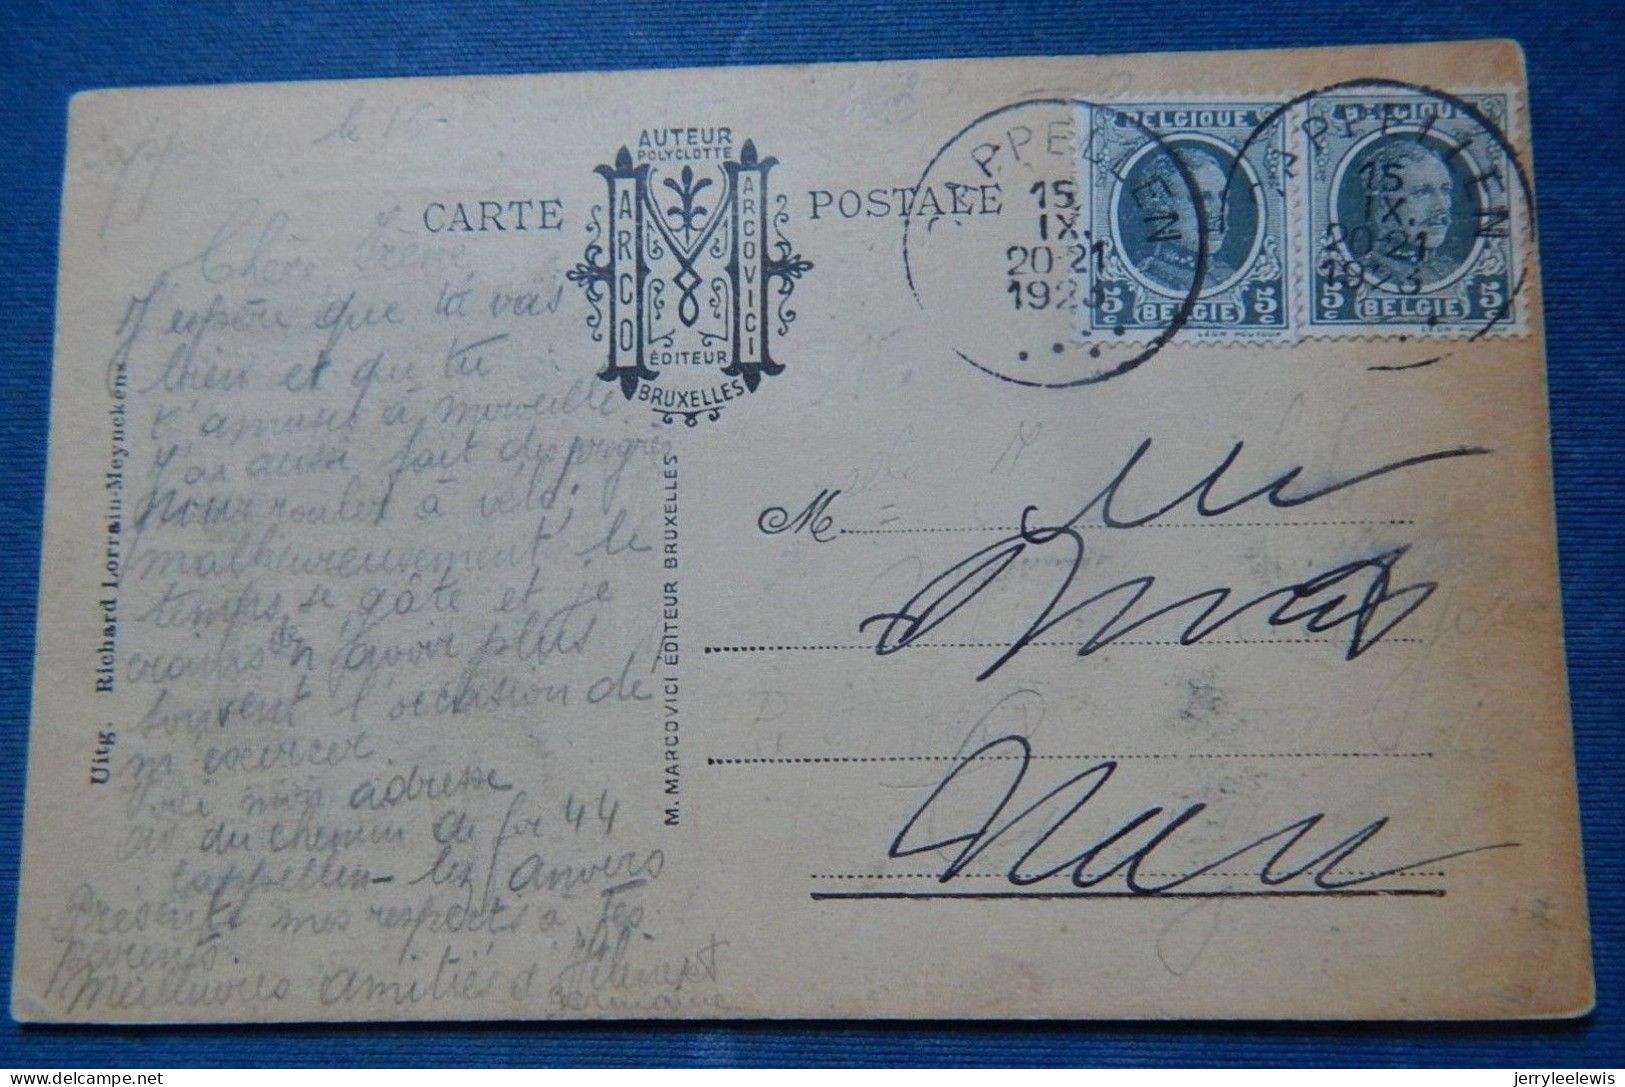 le 15
CARTE POSTALE
AUTEUR
POLYGLOTTE
ARCO
MARCOVICI
ÉDITEUR
BRUXELLES
CAPPELLEN
15
IX.
20-21
1923
CAPPELLEN
15
IX.
20-21
1923
BELGIQUE
5c 5c
BELGIE
BELGIQUE
5c 5c
BELGIE
Chère Irène
J'espère que tu vas
bien et que tu
t'amuses à merveille
J'ai aussi fait des progrès
pour rouler à vélo,
malheureusement le
temps se gâte et je
crains de n'avoir plus
souvent l'occasion de
m'exercer
Voici mon adresse
av du chemin de fer 44
Cappellen-lez Anvers
Présente mes respects à tes
parents.
Meilleures amitiés d'
Germaine
Uitg. Richard Lorrain-Meynckens
M. MARCOVICI EDITEUR BRUXELLES
M